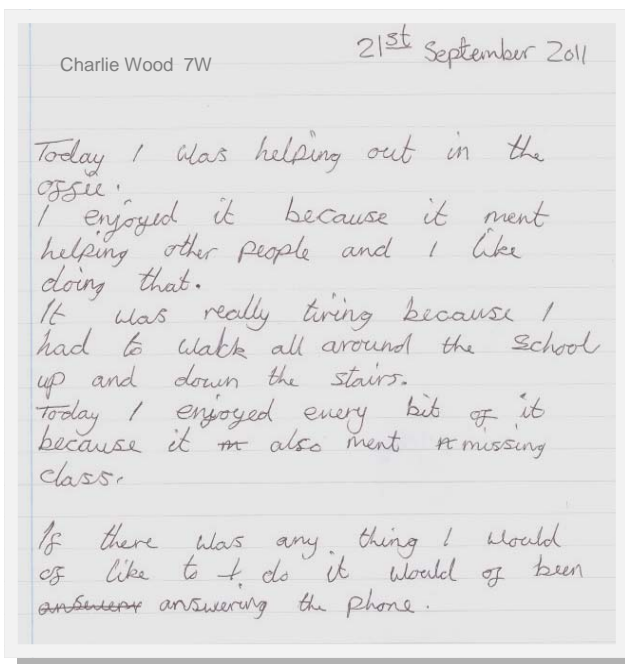 Charlie Wood 7W
21st September 2011
Today I was helping out in the
offie.
I enjoyed it because it ment
helping other people and I like
doing that.
It was really tiring because I
had to walk all around the School
up and down the stairs.
Today I enjoyed every bit of it
because it m also ment missing
class.
If there was any thing I would
of like to do it would of been
answering the phone.